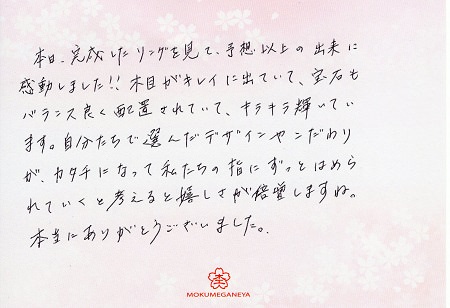 本日、完成したリングを見て、予想以上の出来に
感動しました!!木目がキレイに出ていて、宝石も
バランス良く配置されていて、キラキラ輝いてい
ます。自分たちで選んだデザインやこだわり
が、カタチになって私たちの指にずっとはめら
れていくと考えると嬉しさが倍増しますね。
本当にありがとうございました。
MOKUMEGANEYA